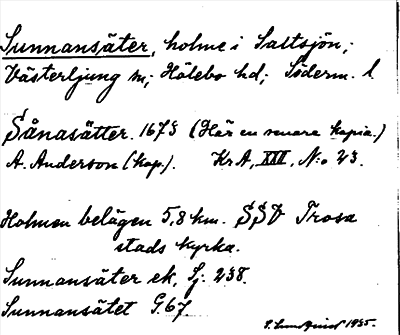 Sunnansäter, holme i Saltsjön;
Västerljung sn; Hölebo hd; Söderm. l
Sånasätter. 1678 (Här en senare kopia.)
A. Anderson (kop.). KrA, XXI, N:o 23.
Holmen belägen 5,8 km. SSV Trosa
stads kyrka.
Sunnansäter ek, Sj. 238.
Sunnansätet G.67
1935.